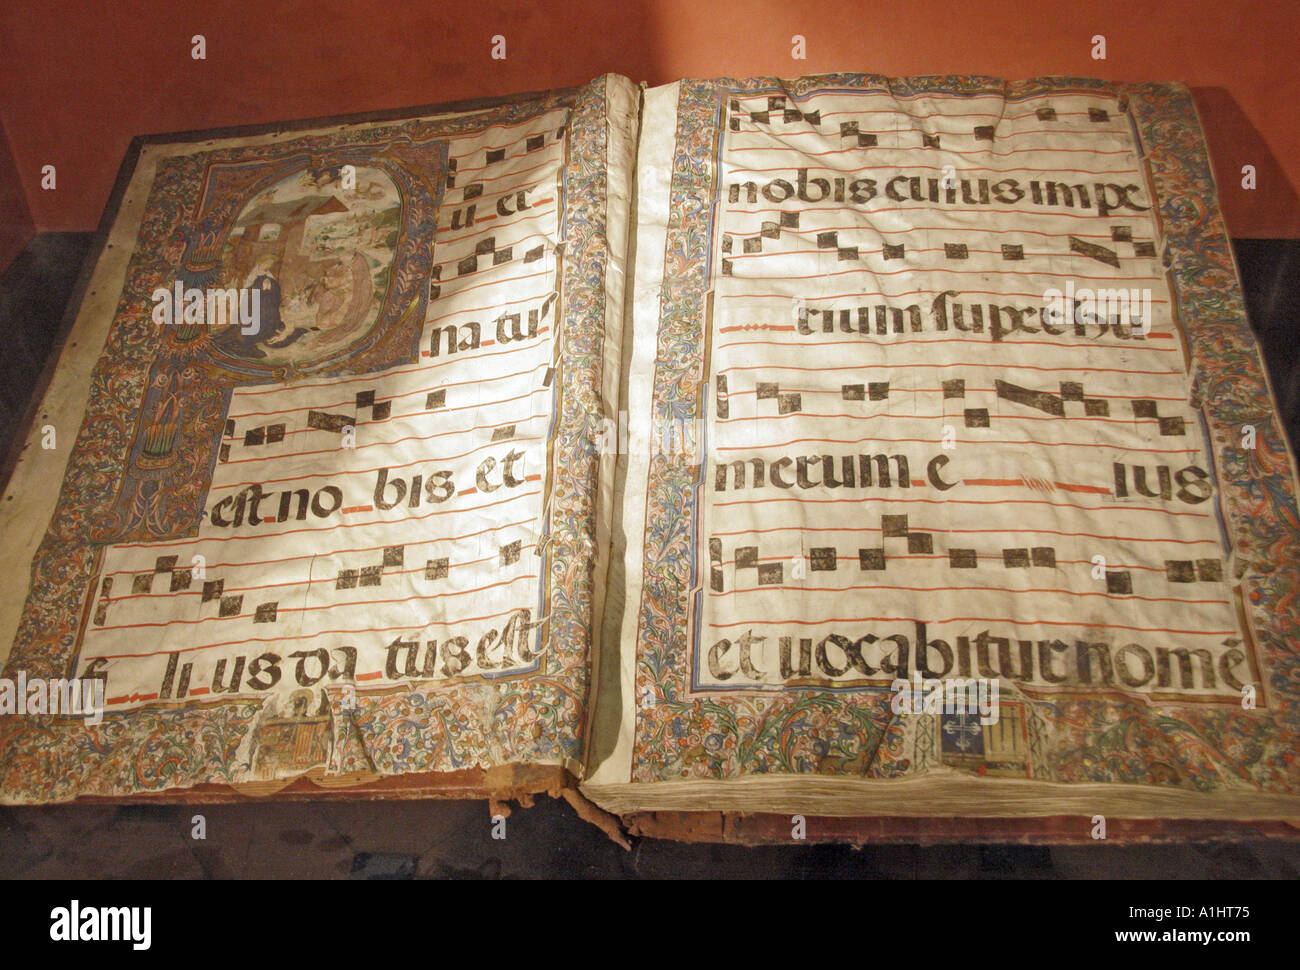 u er
na tus
est no bis et
fi li us da tus est
nobis cuius impe
rium super hu
merum e ius
et vocabitur nomē
alamy
Image ID: A1HT75
www.alamy.com